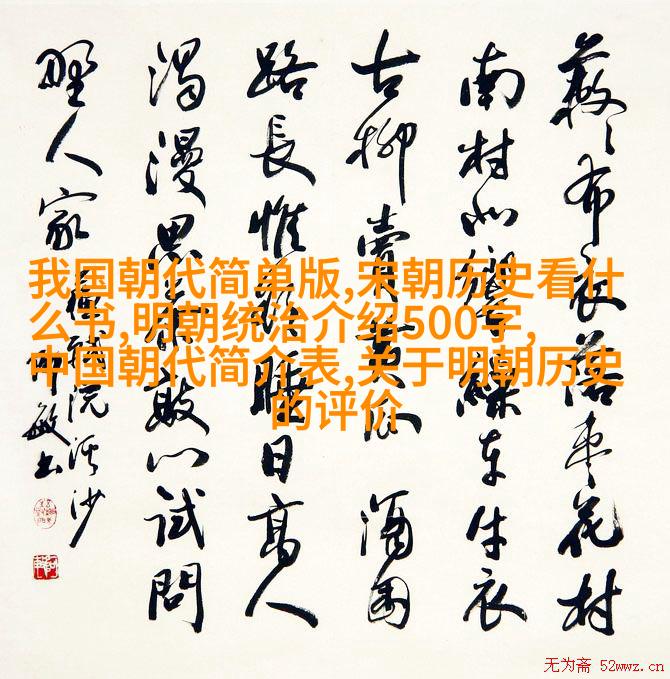 我国朝代简单版,宋朝历史看什
么书,明朝统治介绍500字,
中国朝代简介表,关于明朝历史
的评价
蔌〻布衣落枣花村
南村北缫车牛衣
古柳賣黄瓜 酒困
路長惟欲睡日高人
渴漫思茶敲门试问
野人家
蘇軾浣溪沙
敏书
无为斋 52wwz.cn